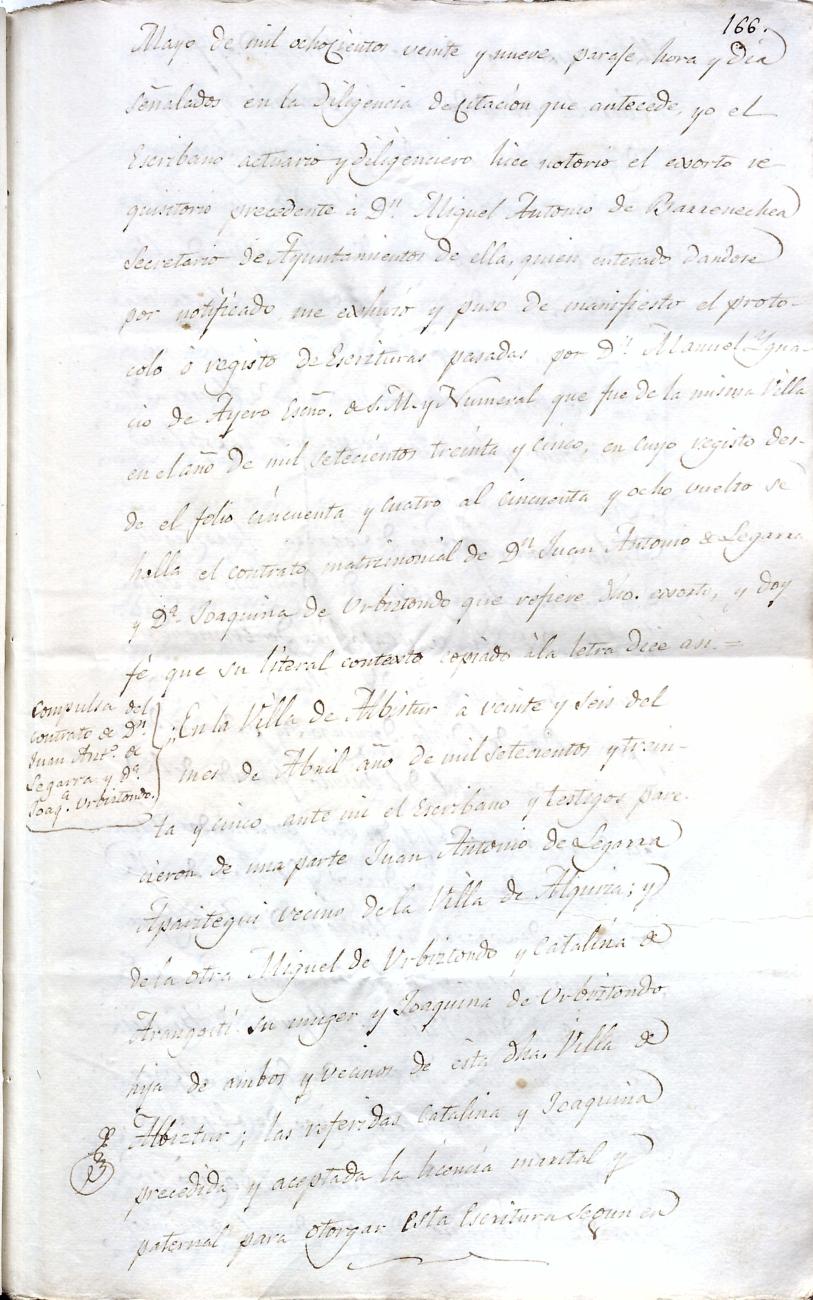 166.
Mayo de mil ochocientos veinte y nueve, paraje, hora y dia
señalados en la Diligencia de Citacion que antecede, yo el
Escribano actuario y diligenciero hice notorio el exorto re-
quisitorio precedente à Dn. Miguel Antonio de Barrenechea
Secretario de Ayuntamientos de ella, quien enterado dandose
por notificado me exhivió y puso de manifiesto el proto-
colo ò registo de Escrituras pasadas por Dn. Manuel Ygna-
cio de Ayero Esño. de S. M. y Numeral que fue de la misma Villa
en el año de mil setecientos treinta y cinco, en cuyo registo des-
de el folio cincuenta y cuatro al cincuenta y ocho vuelto se
halla el contrato matrimonial de Dn. Juan Antonio de Legarra
y Da. Joaquina de Urbiztondo que refiere dho. exorto, y doy
fé que su literal contexto copiado àla letra dice asi. =
Compulsa del
contrato de Dn.
Juan Anto. de
Legarra y Da.
Joaqa. Urbiztondo.
En la Villa de Albistur à veinte y seis del
mes de Abril año de mil setecientos y trein-
ta y cinco ante mi el Escribano y testigos pare-
cieron de una parte Juan Antonio de Legarra
Apaiztegui vecino de la Villa de Alquiza; y
de la otra Miguel de Urbiztondo y Catalina de
Arangoiti su muger y Joaquina de Urbiztondo
hija de ambos y vecinos de ésta dha. Villa de
Albiztur; las referidas Catalina y Joaquina
precedida y aceptada la licencia marital y
paternal para otorgar esta Escritura segun en